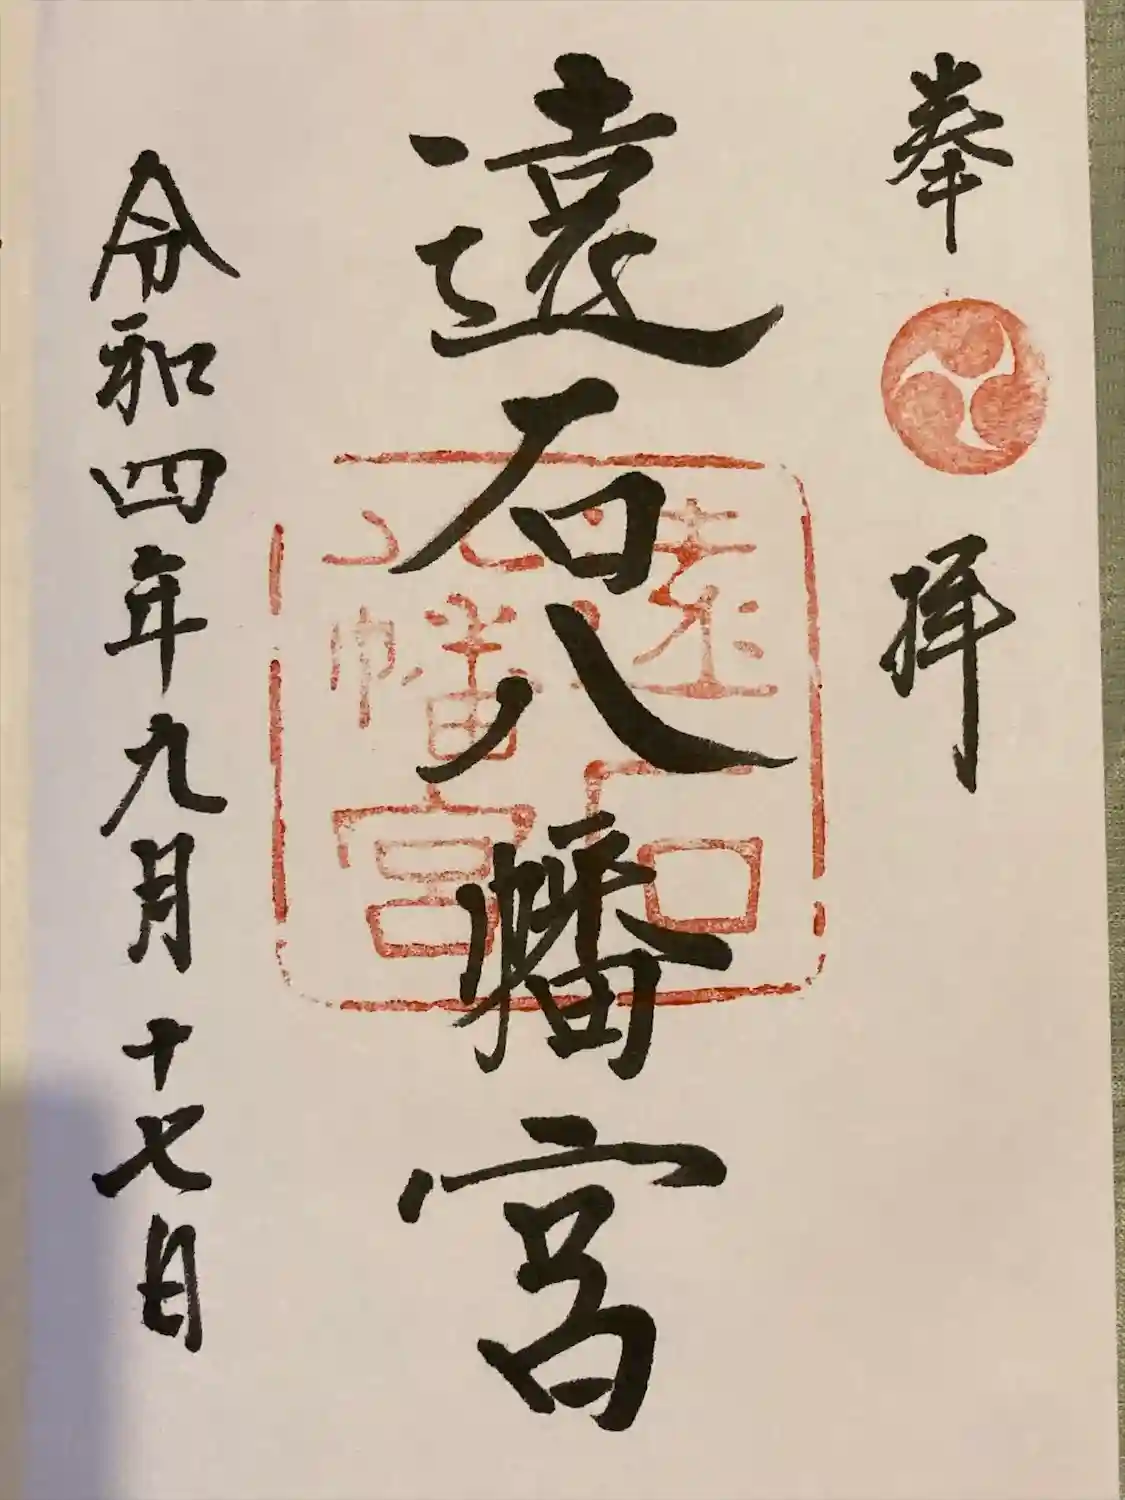 奉拝
遠石八幡宮
遠石
八幡宮
令和四年九月十七日